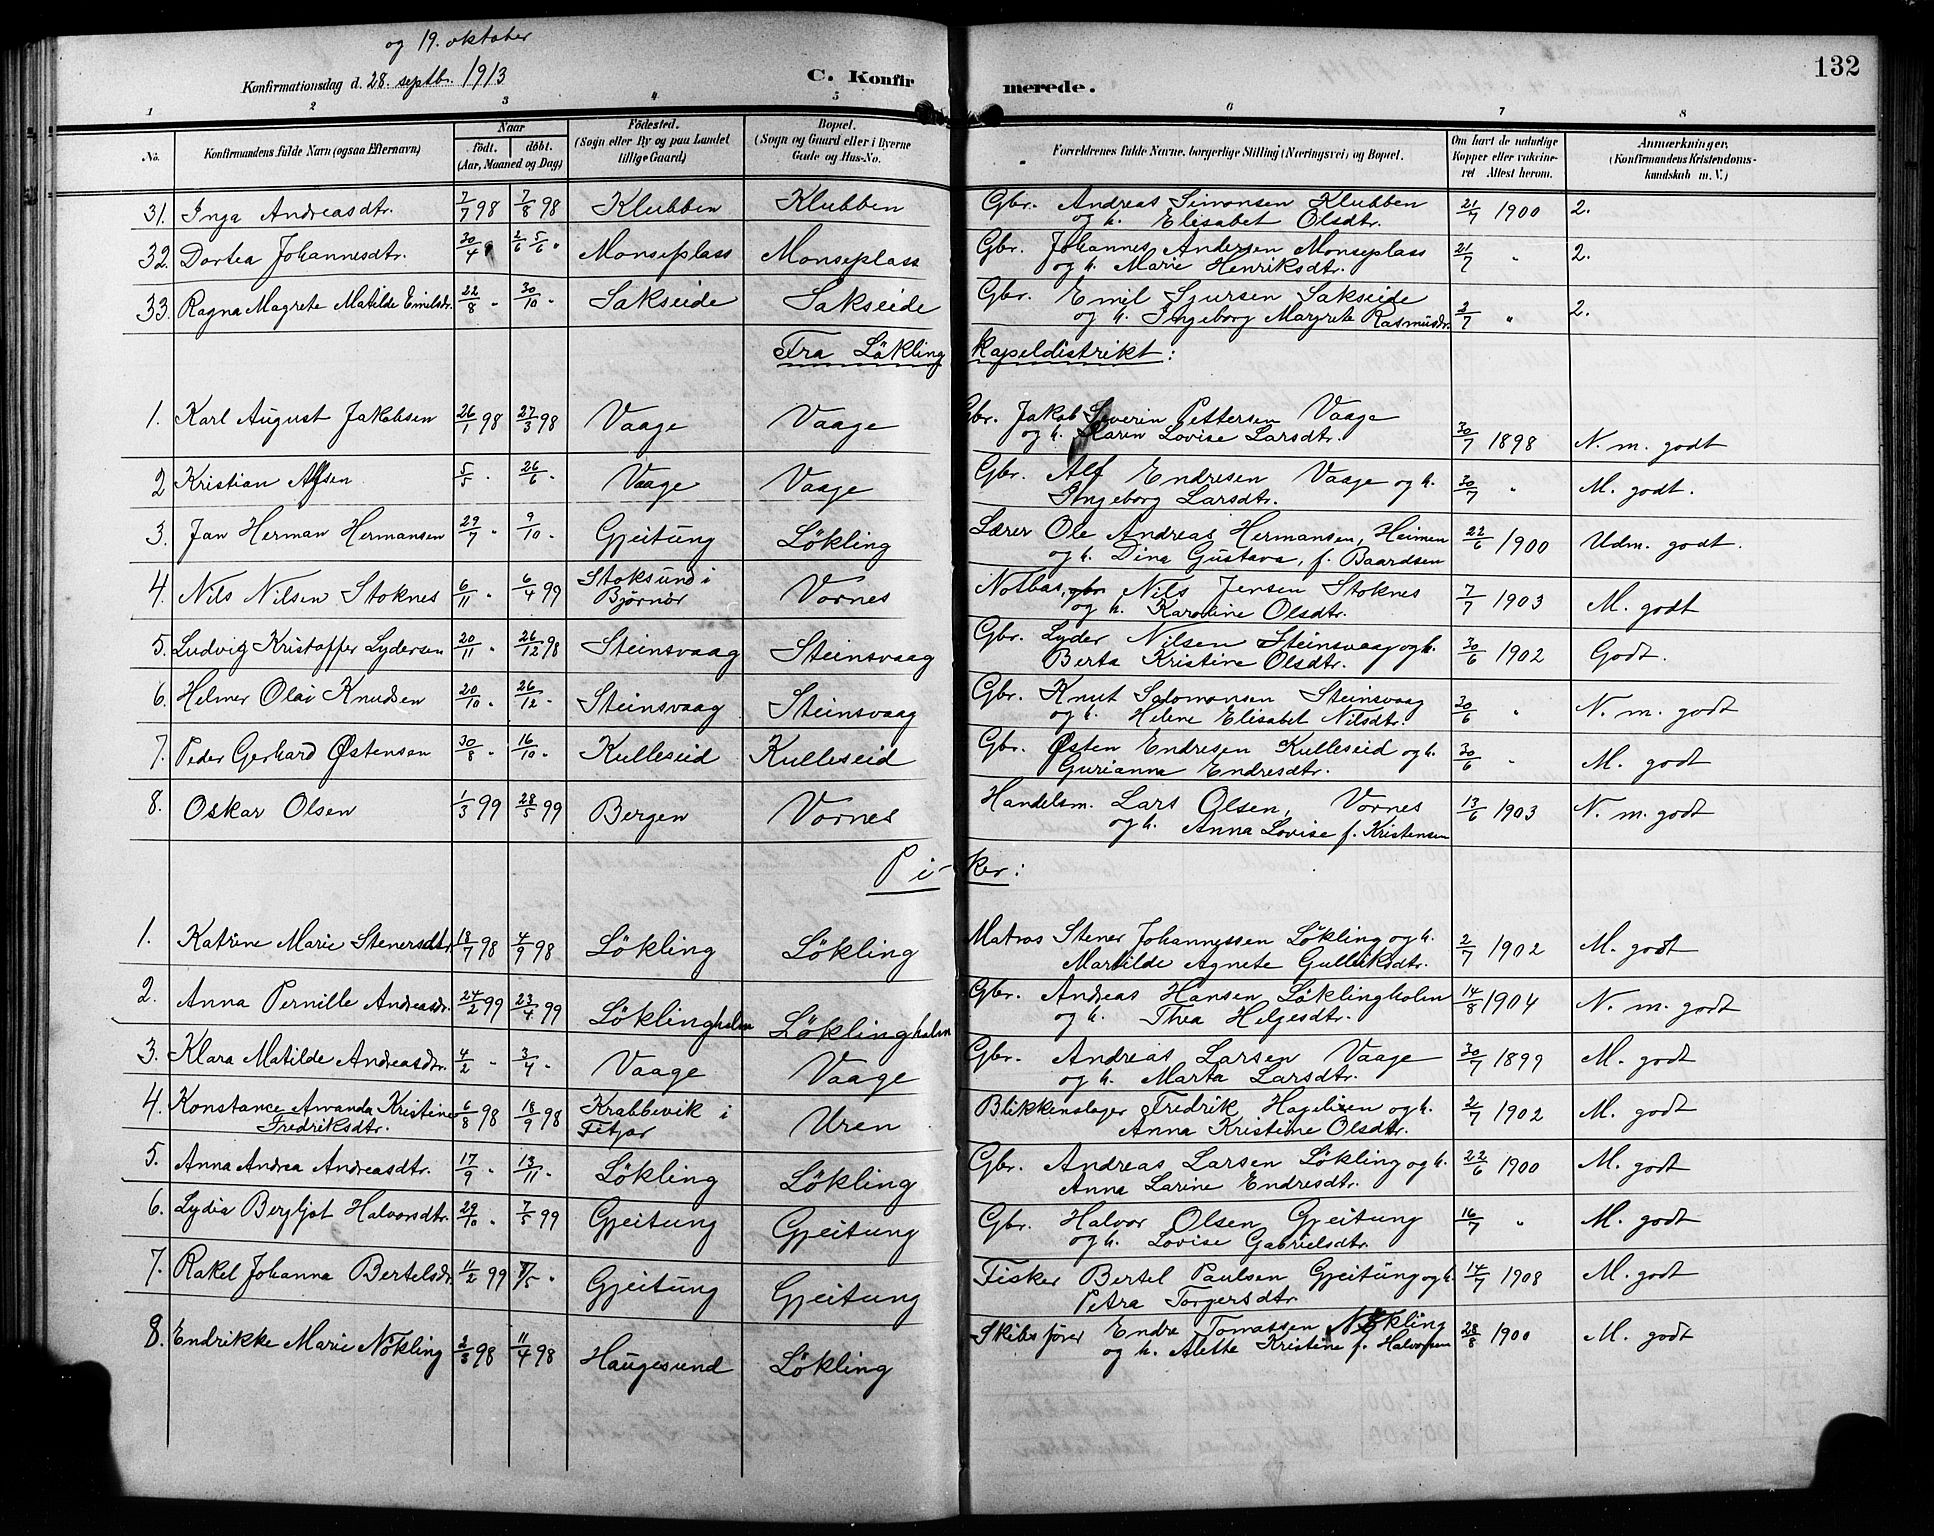 og 19. oktober
Konfirmationsdag d. 28. septbr. 1913
C. Konfirmerede.
132
1 2 3 4 5 6 7 8
No. Konfirmandens fulde Navn (ogsaa Efternavn) Naar født. døbt. (Aar, Maaned og Dag) Fødested. (Sogn eller By og paa Landet tillige Gaard) Bopæl. (Sogn og Gaard eller i Byerne Gade og Hus-No. Forældrenes fulde Navne, borgerlige Stilling (Næringsvei) og Bopæl. Om havt de naturlige Kopper eller vakcineret Attest herom. Anmærkninger. (Konfirmandens Kristendomskundskab m. V.)
31. Inga Andreasdtr. 7/7 98 7/8 98 Klubben Klubben Gbr. Andreas Simonsen Klubben og h. Elisabet Olsdtr. 21/7 1900 2.
32. Dortea Johannesdtr. 30/4 " 2/6 5/6 " Monseplass Monseplass Gbr. Johannes Andersen Monseplass og h. Marie Henriksdtr. 21/7 " 2.
33. Ragna Magrete Matilde Emilsdr. 22/8 " 30/10 " Sakseide Sakseide Gbr. Emil Sjursen Sakseide og h. Ingeborg Margrete Rasmusdr. 2/7 " 2.
Fra Lökling kapeldistrikt:
1. Karl August Jakobsen 26/1 98 27/3 98 Vaage Vaage Gbr. Jakob Severin Pettersen Vaage og h. Karen Lovise Larsdtr. 30/7 1898 N. m. godt
2 Kristian Alfsen 5/5 " 26/6 " Vaage Vaage Gbr. Alf Endresen Vaage og h. Ingeborg Larsdtr. 30/7 " M. godt.
3. Jan Herman Hermansen 29/7 " 9/10 " Gjeitung Lökling Lærer Ole Andreas Hermansen, Heimen og h. Dina Gustava, f. Baardsen 22/6 1900 Udm. godt.
4. Nils Nilsen Stoknes 6/11 " 6/4 99 Stoksund i Bjørnør Vornes Notbas, gbr. Nils Jensen Stoknes og h. Karoline Olsdtr. 7/7 1903 M. godt
5. Ludvig Kristoffer Lydersen 20/11 " 26/12 98 Steinsvaag Steinsvaag Gbr. Lyder Nilsen Steinsvaag og h. Berta Kristine Olsdtr. 30/6 1902 Godt.
6. Helmer Olai Knudsen 20/10 " 26/12 " Steinsvaag Steinsvaag Gbr. Knut Salomonsen Steinsvaag og h. Helene Elisabet Nilsdtr. 30/6 " N. m. godt
7. Peder Gerhard Østensen 30/8 " 16/10 " Kulleseid Kulleseid Gbr. Østen Endresen Kulleseid og h. Gurianna Endresdtr. 30/6 " M. godt
8. Oskar Olsen 1/3 99 28/5 99 Bergen Vornes Handelsm. Lars Olsen, Vornes og h. Anna Lovise f. Kristensen 13/6 1903 N. m. godt
Piker:
1. Katrine Marie Stenersdtr. 18/7 98 4/9 98 Lökling Lökling Matros Stener Johannessen Lökling og h. Martilde Agnete Gulliksdtr. 2/7 1902 M. godt
2. Anna Pernille Andreasdr. 24/2 99 23/4 99 Löklingholm Löklingholm Gbr. Andreas Hansen Löklingholm og h. Thea Helgesdtr. 14/8 1904 N. m. godt
3. Klara Matilde Andreasdtr. 4/2 " 3/4 " Vaage Vaage Gbr. Andreas Larsen Vaage og h. Marta Larsdtr. 30/7 1899 M. godt
4. Konstance Amanda Kristine Fredriksdtr. 6/8 98 18/9 98 Krabbevik i Fitjar Uren Blikkenslager Fredrik Hagelisen og h. Anna Kristine Olsdtr. 2/7 1902 M. godt
5. Anna Andrea Andreasdtr. 17/9 " 13/11 " Lökling Lökling Gbr. Andreas Larsen Lökling og h. Anna Larine Endresdtr. 22/6 1900 M. godt
6. Lydia Bergljot Halvorsdtr. 29/10 " 7/5 99 Gjeitung Gjeitung Gbr. Halvor Olsen Gjeitung og h. Lovise Gabrielsdtr. 16/7 " M. godt
7. Rakel Johanna Bertelsdr. 11/2 99 7/5 " Gjeitung Gjeitung Fisker Bertel Paulsen Gjeitung og h. Petra Torgersdtr. 14/7 1908 M. godt
8. Endrikke Marie Nökling 2/3 98 11/4 98 Haugesund Lökling Skibsfører Endre Tomassen Nökling og h. Alette Kristine f. Halvorsen 28/8 1900 M. godt